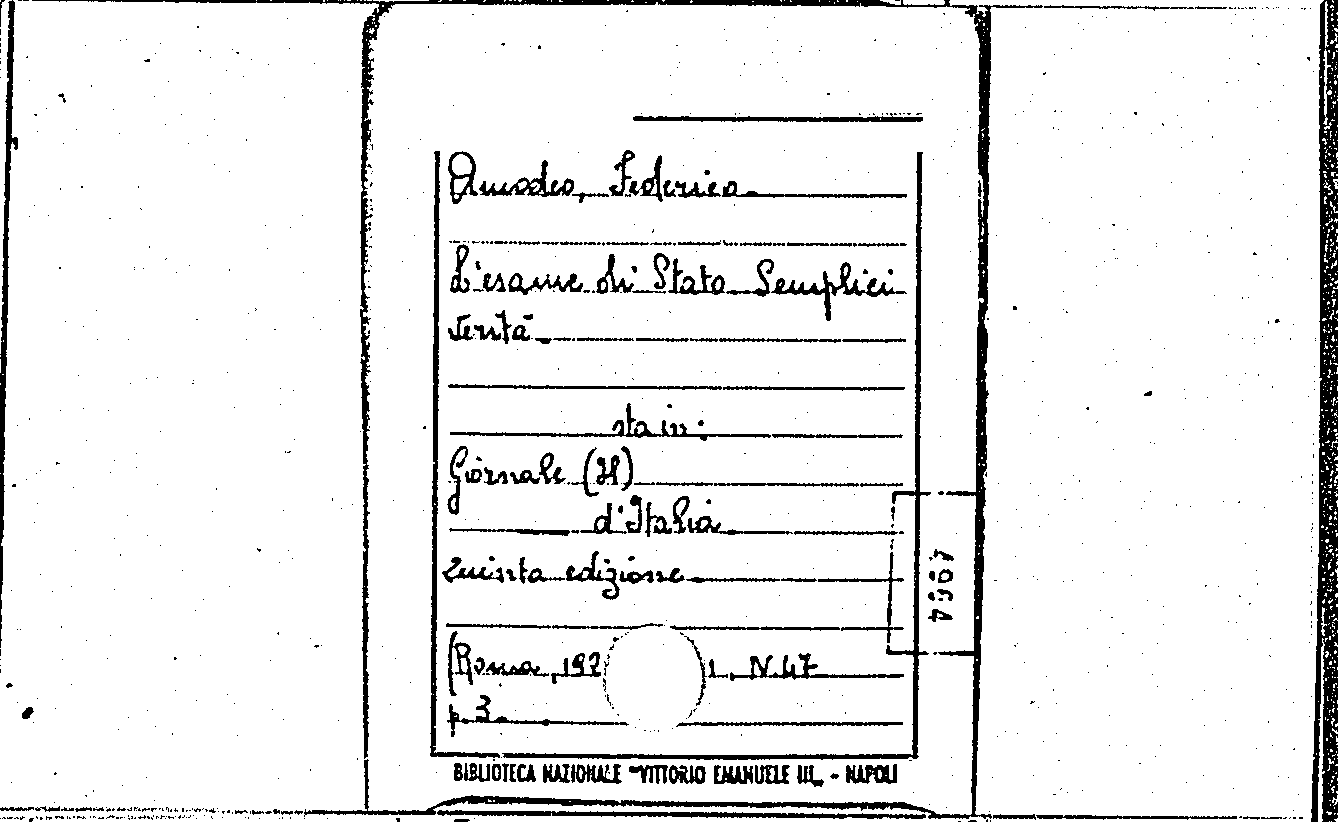 Amodeo, Federico.
L'esame di Stato Semplici
verità.
sta in:
Giornale (Il)
d'Italia.
Quinta edizione.
(Roma, 192 1, N. 47
p. 3.
BIBLIOTECA NAZIONALE "VITTORIO EMANUELE III„ - NAPOLI